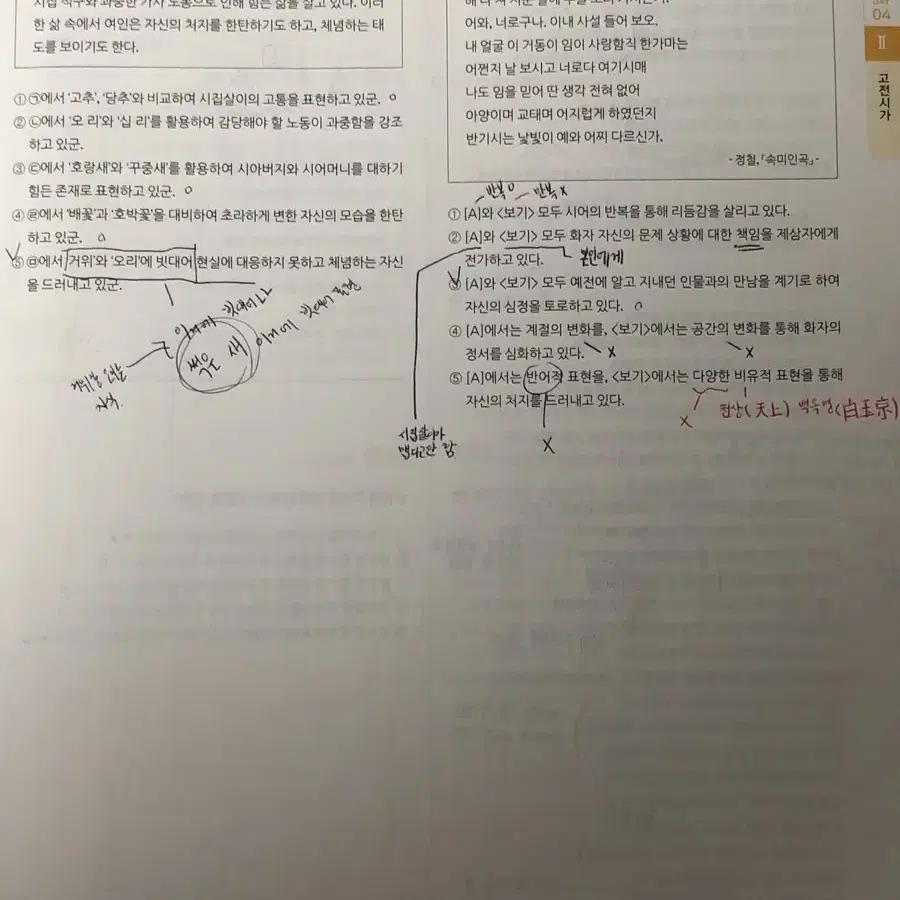 한 삶 속에서 여인은 자신의 처지를 한탄하기도 하고, 체념하는 태
도를 보이기도 한다.
① ㉠에서 '고추', '당추'와 비교하여 시집살이의 고통을 표현하고 있군. o
② ㉡에서 '오 리'와 '십 리'를 활용하여 감당해야 할 노동이 과중함을 강조
하고 있군.
③ ㉢에서 '호랑새'와 '꾸중새'를 활용하여 시아버지와 시어머니를 대하기
힘든 존재로 표현하고 있군. o
④ ㉣에서 '배꽃'과 '호박꽃'을 대비하여 초라하게 변한 자신의 모습을 한탄
하고 있군. o
⑤ ㉤에서 '거위'와 '오리'에 빗대어 현실에 대응하지 못하고 체념하는 자신
을 드러내고 있군.
썩은 새
DAY
04
II
고전시가
어와, 너로구나. 이내 사설 들어 보오.
내 얼굴 이 거동이 임이 사랑함직 한가마는
어쩐지 날 보시고 너로다 여기시매
나도 임을 믿어 딴 생각 전혀 없어
아양이며 교태며 어지럽게 하였던지
반기시는 낯빛이 예와 어찌 다르신가.
- 정철, 「속미인곡」-
반복 o 반복 x
① [A]와 <보기> 모두 시어의 반복을 통해 리듬감을 살리고 있다.
② [A]와 <보기> 모두 화자 자신의 문제 상황에 대한 책임을 제삼자에게
전가하고 있다. 본인에게
③ [A]와 <보기> 모두 예전에 알고 지내던 인물과의 만남을 계기로 하여
자신의 심정을 토로하고 있다. o
④ [A]에서는 계절의 변화를, <보기>에서는 공간의 변화를 통해 화자의
정서를 심화하고 있다. x x
⑤ [A]에서는 반어적 표현을, <보기>에서는 다양한 비유적 표현을 통해
자신의 처지를 드러내고 있다.
x 천상(天上) 백옥경(白玉京)
x
시집살이가
맵다고만 함